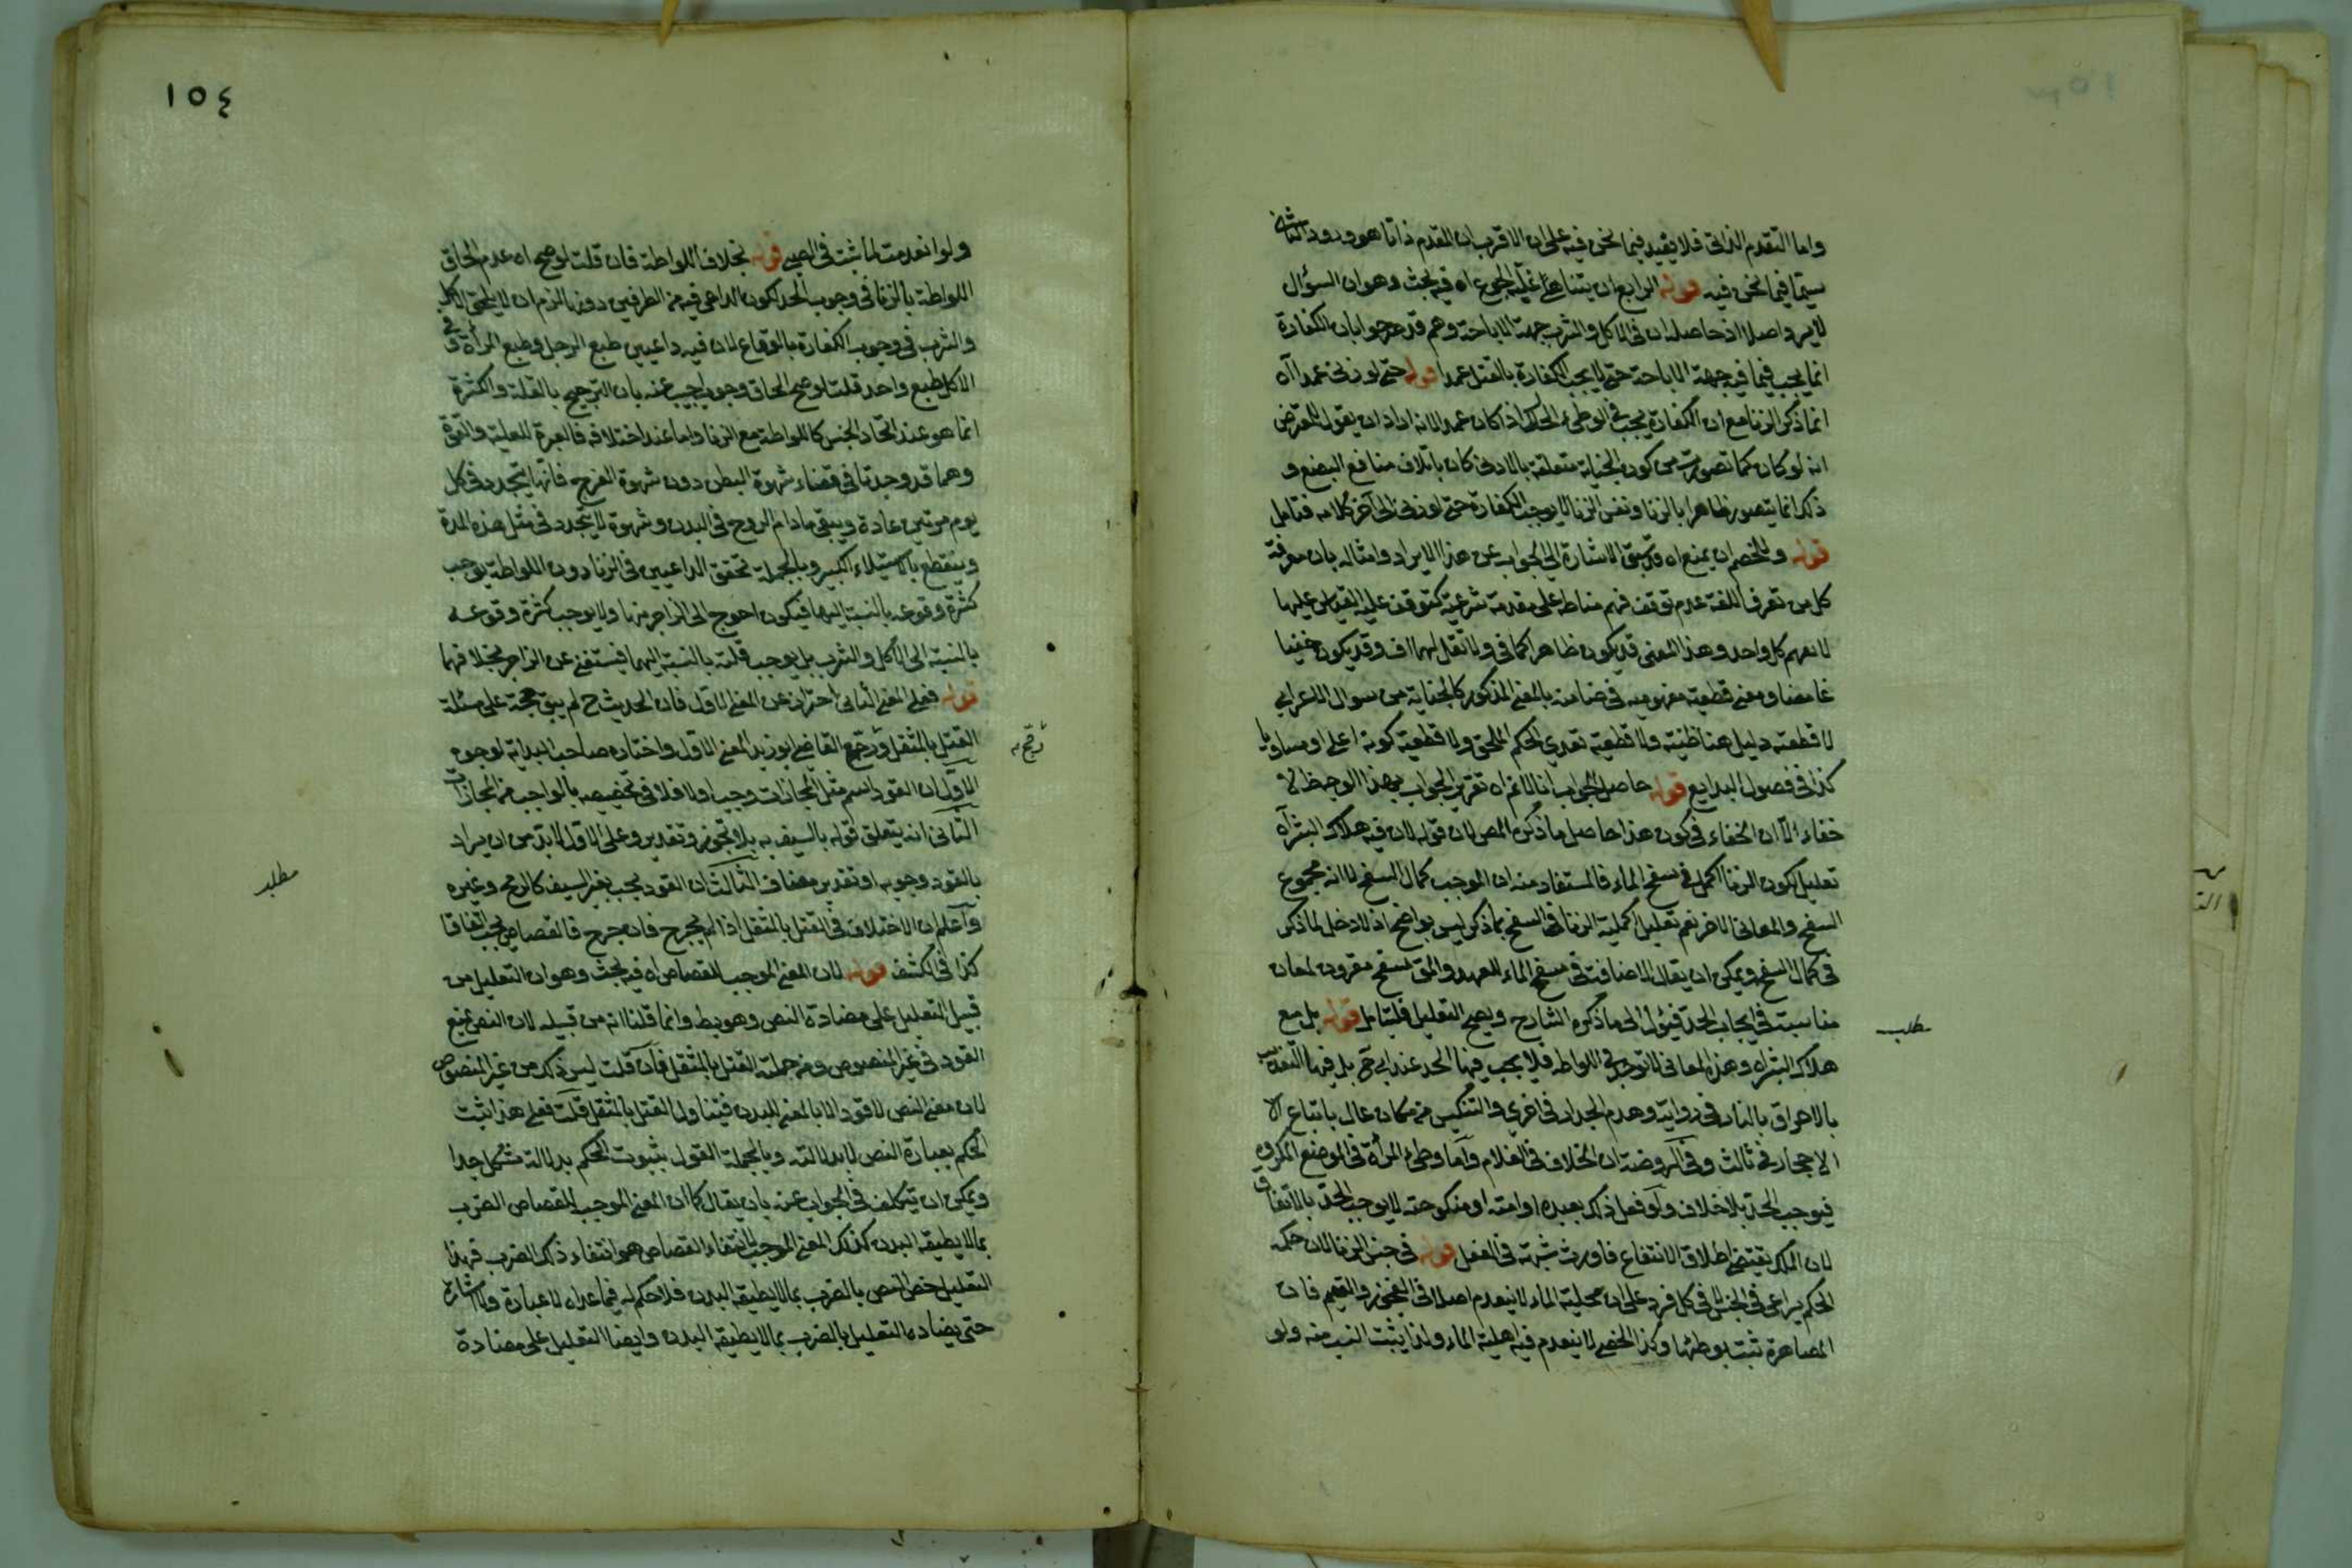 واما التقدم الذاتى فلا يفيد فيما نحن فيه على ان الاقرب ان المقدم ذاتا هو ورود
سيما فيما نحن فيه قوله الرابع ان يتناهى غلبة الجوع اه فيه بحث وهو ان السؤال
لا يرد اصلا اذ حاصله ان فى الاكل والشرب جهة الاباحة وهم قد صرحوا بان الكفارة
انما يجب فيما فيه جهة الاباحة حتى لا يجب الكفارة بالقتل عمدا قوله حتى لو زنى عمدا آه
انما ذكر الزنا مع ان الكفارة يجب فى الوطئ الحلال اذا كان عمدا لانه اراد ان يقول المعترض
انه لو كان كما تصورت من كون الجناية متعلقة بالاذى كان باتلاف منافع البضع و
ذلك انما يتصور ظاهرا بالزنا ونفس الزنا لا يوجب الكفارة حتى لو زنى الى آخر كلامه فتامل
قوله وللخصم ان يمنع اه قد سبق الاشارة الى الجواب عن هذا الايراد وامثاله بان معرفة
كل من تعرف اللغة عدم توقف فهم مناطه على مقدمة شرعية كتوقف علية القياس عليها
لا تفهم كل واحد وهذا المعنى قد يكون ظاهرا كما فى ولا تقل لهما اف وقد يكون خفيا
غامضا ومعنى قطعية مفهوميه فى ضامنه بالمعنى المذكور كالجناية من سوال الاعرابى
لا قطعية دليل هنا ظنية ولا قطعية تعدى الحكم الملحق ولا قطعية كونه اعلى او مساويا
كذا فى فصول البدايع قوله حاصل الجواب انا لا نم اه تقرير الجواب بهذا الوجه
خفاء الا ان الخفاء فى كون هذا حاصل ما ذكره المص لان قوله لان فيه هلاك البشر آه
تعليل لكون الزنا اكمل فى سفح الماء فالمستفاد منه ان الموجب كمال السفح لا انه مجموع
السفح والمعانى الاخر نعم تعليل اكملية الزنا فى السفح بما ذكر ليس بواضح اذ لا دخل لما ذكر
فى كمال السفح ويمكن ان يقال الاضافة فى سفح الماء للعهد والمق سفح مقرون لمعان
مناسبة فى ايجاب الحد فيؤل الى ما ذكره الشارح ويصح التعليل فليتامل قوله بل مع
هلاك البشر اه وهذه المعانى لا توجد فى اللواطه فلا يجب فيها الحد عند ابى ح بل فيها التعذيب
بالاحراق بالنار فى رواية وهدم الجدار فى اخرى والتنكيس من مكان عال باتباع الا
الاحجار فى ثالث وفى الروضة ان الخلاف فى الغلام واما وطئ المرأة فى الموضع المكروه
فيوجب الحد بلا خلاف ولو فعل ذلك بعبده او امته او منكوحته لا يوجب الحد بالاتفاق
لان الملك يقتضى اطلاق الانتفاع فاورث شبهة فى الفعل قوله فى جنس الزنا لان حكمه
الحكم يراعى فى الجنس لا فى كل فرد على ان محلية الماء لا ينعدم اصلا فى العجوز والعقيم فان
المصاهرة تثبت بوطئها وكذا الخصى لا ينعدم فيه اهلية الماء ولذا يثبت النسب منه ولو
مطلب
١٥٤
ولو انعدمت لما ثبت فى الصبى قوله بخلاف اللواطة فان قلت لو صح اه عدم الحاق
اللواطة بالزنا فى وجوب الحد لكون الداعى فيه من الطرفين دونها لزم ان لا يلحق الاكل
والشرب فى وجوب الكفارة بالوقاع لان فيه داعيين طبع الرجل وطبع المرأة وفى
الاكل طبع واحد قلت لو صح الحاق وجوب اجيب عنه بان الترجيح بالقلة والكثرة
انما هو عند اتحاد الجنس كاللواطة مع الزنا واما عند اختلافه فالعبرة للغلبة والقوة
وهما قد وجدتا فى قضاء شهوة البطن دون شهوة الفرج فانها يتجدد فى كل
يوم مرتين عادة ويبقى ما دام الروح فى البدن وشهوة لا يتجدد فى مثل هذه المدة
وينقطع بالاستيلاء الكبر وبالجملة تحقق الداعيين فى الزنا دون اللواطة يوجب
كثرة وقوعه بالنسبة اليها فيكون احوج الى الزاجر منها ولا يوجب كثرة وقوعه
بالنسبة الى الاكل والشرب بل يوجب قلته بالنسبة اليهما فيستغنى عن الزاجر بخلافهما
قوله فعلى المعنى الثانى احتراز عن المعنى الاول فان الحديث ح لم يبق حجة على مسئلة
القتل بالمثقل ورجح القاضى ابو زيد المعنى الاول واختاره صاحب الهداية لوجوه
الاول ان القود اسم مثل المجازات وجب اولا فلا فى تخصيصه بالواجب من المجازات
الثانى انه يتعلق قوله بالسيف به بلا تجوز وتقدير وعلى الاول لا بد من ان يراد
بالقود وجوبه او تقدير مضاف الثالث ان القود يجب بغير السيف كالرمح وغيره
واعلم ان الاختلاف فى القتل بالمثقل اذا لم يجرح فان جرح فالقصاص يجب اتفاقا
كذا فى الكشف قوله لان المعنى الموجب للقصاص اه فيه بحث وهو ان التعليل من
قبيل التعليل على مضادة النص وهو بط وانما قلنا انه من قبيله لان النص يمنع
القود فى غير المنصوص ومن جملته القتل بالمثقل فان قلت ليس ذلك من غير المنصوص
لان معنى النص لا قود الا بالمعنى للبدن فيتناول القتل بالمثقل قلت فعلى هذا يثبت
الحكم بعبارة النص لا بدلالته وبالجملة القول بثبوت الحكم بدلالته مشكل جدا
ويمكن ان يتكلف فى الجواب عنه بان يقال كما ان المعنى الموجب للقصاص الضرب
بما لا يطيقه البدن كذلك المعنى الموجب لانتفاء القصاص هو انتفاء ذلك الضرب فهذا
التعليل خص النص بالضرب بما لا يطيقه البدن فلا حكم له فيما عداه لا عبارة ولا اشارة
حتى يضاده التعليل بالضرب بما لا يطيقه البدن وايضا التعليل على مضادة
مطلب